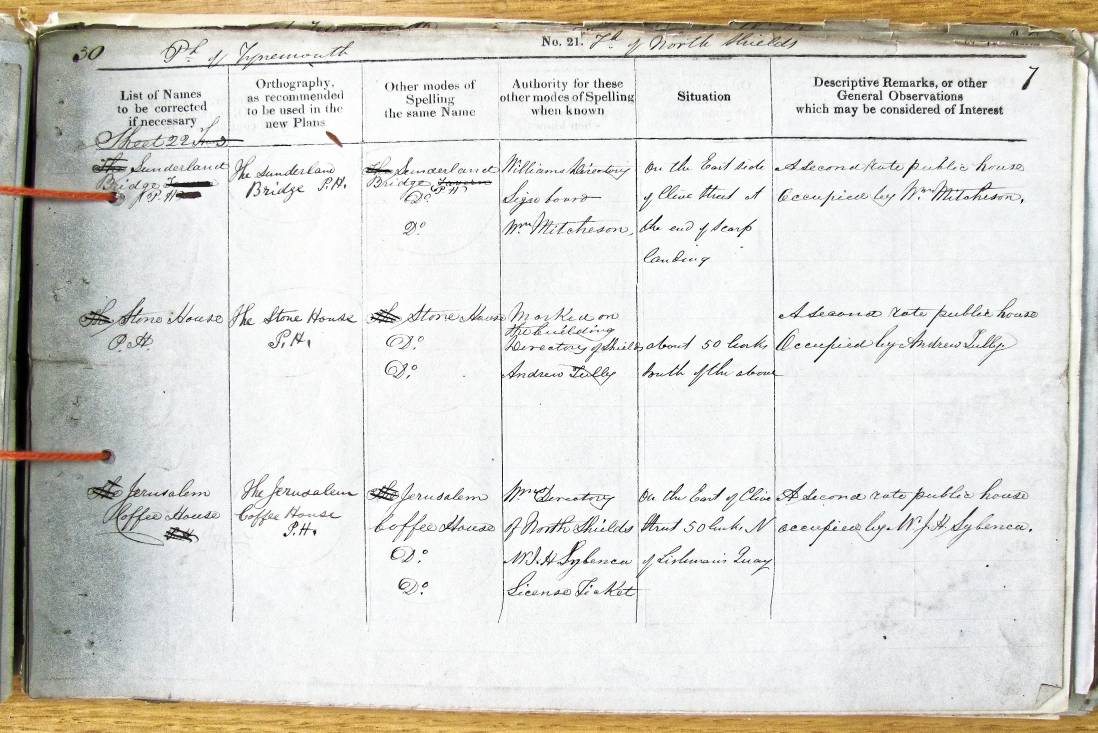 30 Ph of Tynemouth No. 21. Tp of North Shields
7
List of Names to be corrected if necessary
Orthography, as recommended to be used in the new Plans
Other modes of Spelling the same Name
Authority for these other modes of Spelling when known
Situation
Descriptive Remarks, or other General Observations which may be considered of Interest
Sheet 22
The Sunderland Bridge P.H.
The Sunderland Bridge P.H.
The Sunderland Bridge Tavern P.H.
Do
Do
Williams Directory
Sign board
Wm Mitcheson
On the East side
of Clive Street at
the end of Scarp
landing
A Second Rate public house
Occupied by Wm Mitcheson.
The Stone House
P.H.
The Stone House
P.H.
The Stone House
Do
Do
Marked on
the building
Directory of Shields
Andrew Tully
about 50 links
South of the above
A second rate public house
Occupied by Andrew Tully
The Jerusalem
Coffee House
The Jerusalem
Coffee House
P.H.
The Jerusalem
Coffee House
Do
Do
Wms Directory
of North Shields
W.J.H Sybenca
License Ticket
On the East of Clive
Street 50 links N
of Lishman's Quay
A second rate public house
occupied by W.J.H. Sybenca.